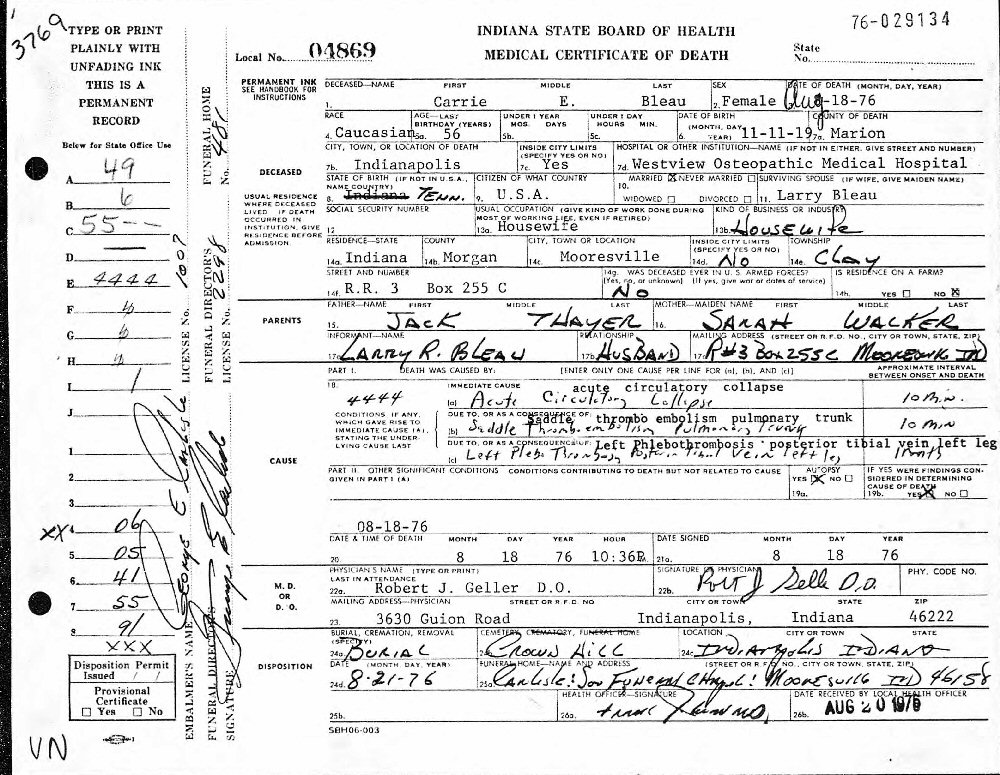 3769
TYPE OR PRINT
PLAINLY WITH
UNFADING INK
THIS IS A
PERMANENT
RECORD
Below for State Office Use
A. 49
B. 6
C. 55--
D.
E. 4444
F.
G.
H.
I. 1
J.
1.
2.
3.
XX 4. 06
5. 05
6. 41
7. 55
8. 91
XXX
Disposition Permit
Issued / /
Provisional
Certificate
☐ Yes ☐ No
VN
EMBALMER'S NAME George E Carlisle LICENSE No. 1007
FUNERAL DIRECTOR'S SIGNATURE
FUNERAL DIRECTOR'S LICENSE No. 2298
FUNERAL HOME No. 481
76-029134
INDIANA STATE BOARD OF HEALTH
Local No. 04869 MEDICAL CERTIFICATE OF DEATH State No.
PERMANENT INK
SEE HANDBOOK FOR
INSTRUCTIONS
DECEASED—NAME FIRST MIDDLE LAST SEX DATE OF DEATH (MONTH, DAY, YEAR)
1. Carrie E. Bleau 2. Female Aug-18-76
RACE AGE—LAST BIRTHDAY (YEARS) UNDER 1 YEAR MOS. DAYS UNDER 1 DAY HOURS MIN. DATE OF BIRTH (MONTH, DAY, YEAR) COUNTY OF DEATH
4. Caucasian 5a. 56 5b. 5c. 6. 11-11-19 7a. Marion
CITY, TOWN, OR LOCATION OF DEATH INSIDE CITY LIMITS (SPECIFY YES OR NO) HOSPITAL OR OTHER INSTITUTION—NAME (IF NOT IN EITHER, GIVE STREET AND NUMBER)
DECEASED
7b. Indianapolis 7c. Yes 7d. Westview Osteopathic Medical Hospital
STATE OF BIRTH (IF NOT IN U.S.A., NAME COUNTRY) CITIZEN OF WHAT COUNTRY MARRIED ☒ NEVER MARRIED ☐ SURVIVING SPOUSE (IF WIFE, GIVE MAIDEN NAME)
8. Indiana TENN. 9. U.S.A. 10. WIDOWED ☐ DIVORCED ☐ 11. Larry Bleau
USUAL RESIDENCE
WHERE DECEASED
LIVED IF DEATH
OCCURRED IN
INSTITUTION, GIVE
RESIDENCE BEFORE
ADMISSION
SOCIAL SECURITY NUMBER USUAL OCCUPATION (GIVE KIND OF WORK DONE DURING MOST OF WORKING LIFE, EVEN IF RETIRED) KIND OF BUSINESS OR INDUSTRY
12 13a. Housewife 13b. HOUSEWife
RESIDENCE—STATE COUNTY CITY, TOWN OR LOCATION INSIDE CITY LIMITS (SPECIFY YES OR NO) TOWNSHIP
14a. Indiana 14b. Morgan 14c. Mooresville 14d. No 14e. Clay
STREET AND NUMBER 14g. WAS DECEASED EVER IN U. S. ARMED FORCES? (Yes, no, or unknown) (If yes, give war or dates of service) IS RESIDENCE ON A FARM?
14f. R.R. 3 Box 255 C No 14h. YES ☐ NO ☒
PARENTS
FATHER—NAME FIRST MIDDLE LAST MOTHER—MAIDEN NAME FIRST MIDDLE LAST
15. JACK THAYER 16. SARAH WALKER
INFORMANT—NAME RELATIONSHIP MAILING ADDRESS (STREET OR R.F.D. NO., CITY OR TOWN, STATE, ZIP)
17a. LARRY R. BLEAU 17b. HUSBAND 17c. R#3 Box 255C
PART I. DEATH WAS CAUSED BY: [ENTER ONLY ONE CAUSE PER LINE FOR (a), (b), AND (c)] APPROXIMATE INTERVAL BETWEEN ONSET AND DEATH
18. IMMEDIATE CAUSE acute circulatory collapse
4444 (a) Acute Circulatory Collapse 10 Min.
CONDITIONS IF ANY,
WHICH GAVE RISE TO
IMMEDIATE CAUSE (A),
STATING THE UNDER-
LYING CAUSE LAST
DUE TO, OR AS A CONSEQUENCE OF: Saddle thrombo embolism pulmonary trunk
(b) Saddle Thromboembolism Pulmonary Trunk 10 Min
DUE TO, OR AS A CONSEQUENCE OF: Left Phlebothrombosis posterior tibial vein left leg
(c) Left Phlebo Thrombosis Posterior Tibial Vein left leg
CAUSE
PART II. OTHER SIGNIFICANT CONDITIONS CONDITIONS CONTRIBUTING TO DEATH BUT NOT RELATED TO CAUSE GIVEN IN PART I (A) AUTOPSY YES ☒ NO ☐ IF YES WERE FINDINGS CONSIDERED IN DETERMINING CAUSE OF DEATH
19a. 19b. YES ☒ NO ☐
08-18-76
DATE & TIME OF DEATH MONTH DAY YEAR HOUR DATE SIGNED MONTH DAY YEAR
20. 8 18 76 10:36P M. 21a. 8 18 76
PHYSICIAN'S NAME (TYPE OR PRINT) LAST IN ATTENDANCE SIGNATURE OF PHYSICIAN PHY. CODE NO.
M. D.
OR
D. O.
22a. Robert J. Geller D.O. 22b. Robt J Geller D.O.
MAILING ADDRESS—PHYSICIAN STREET OR R.F.D. NO CITY OR TOWN STATE ZIP
23. 3630 Guion Road Indianapolis, Indiana 46222
BURIAL, CREMATION, REMOVAL (SPECIFY) CEMETERY, CREMATORY, FUNERAL HOME LOCATION CITY OR TOWN STATE
24a. BURIAL CROWN HILL 24c. INDIANAPOLIS INDIANA
DISPOSITION
DATE (MONTH, DAY, YEAR) FUNERAL HOME—NAME AND ADDRESS (STREET OR R.F.D. NO., CITY OR TOWN, STATE, ZIP)
24d. 8-21-76 25a. CARLISLE & SON FUNERAL CHAPEL MOORESVILLE IND 46158
HEALTH OFFICER—SIGNATURE DATE RECEIVED BY LOCAL HEALTH OFFICER
25b. 26a. 26b. AUG 20 1976
SBH06-003